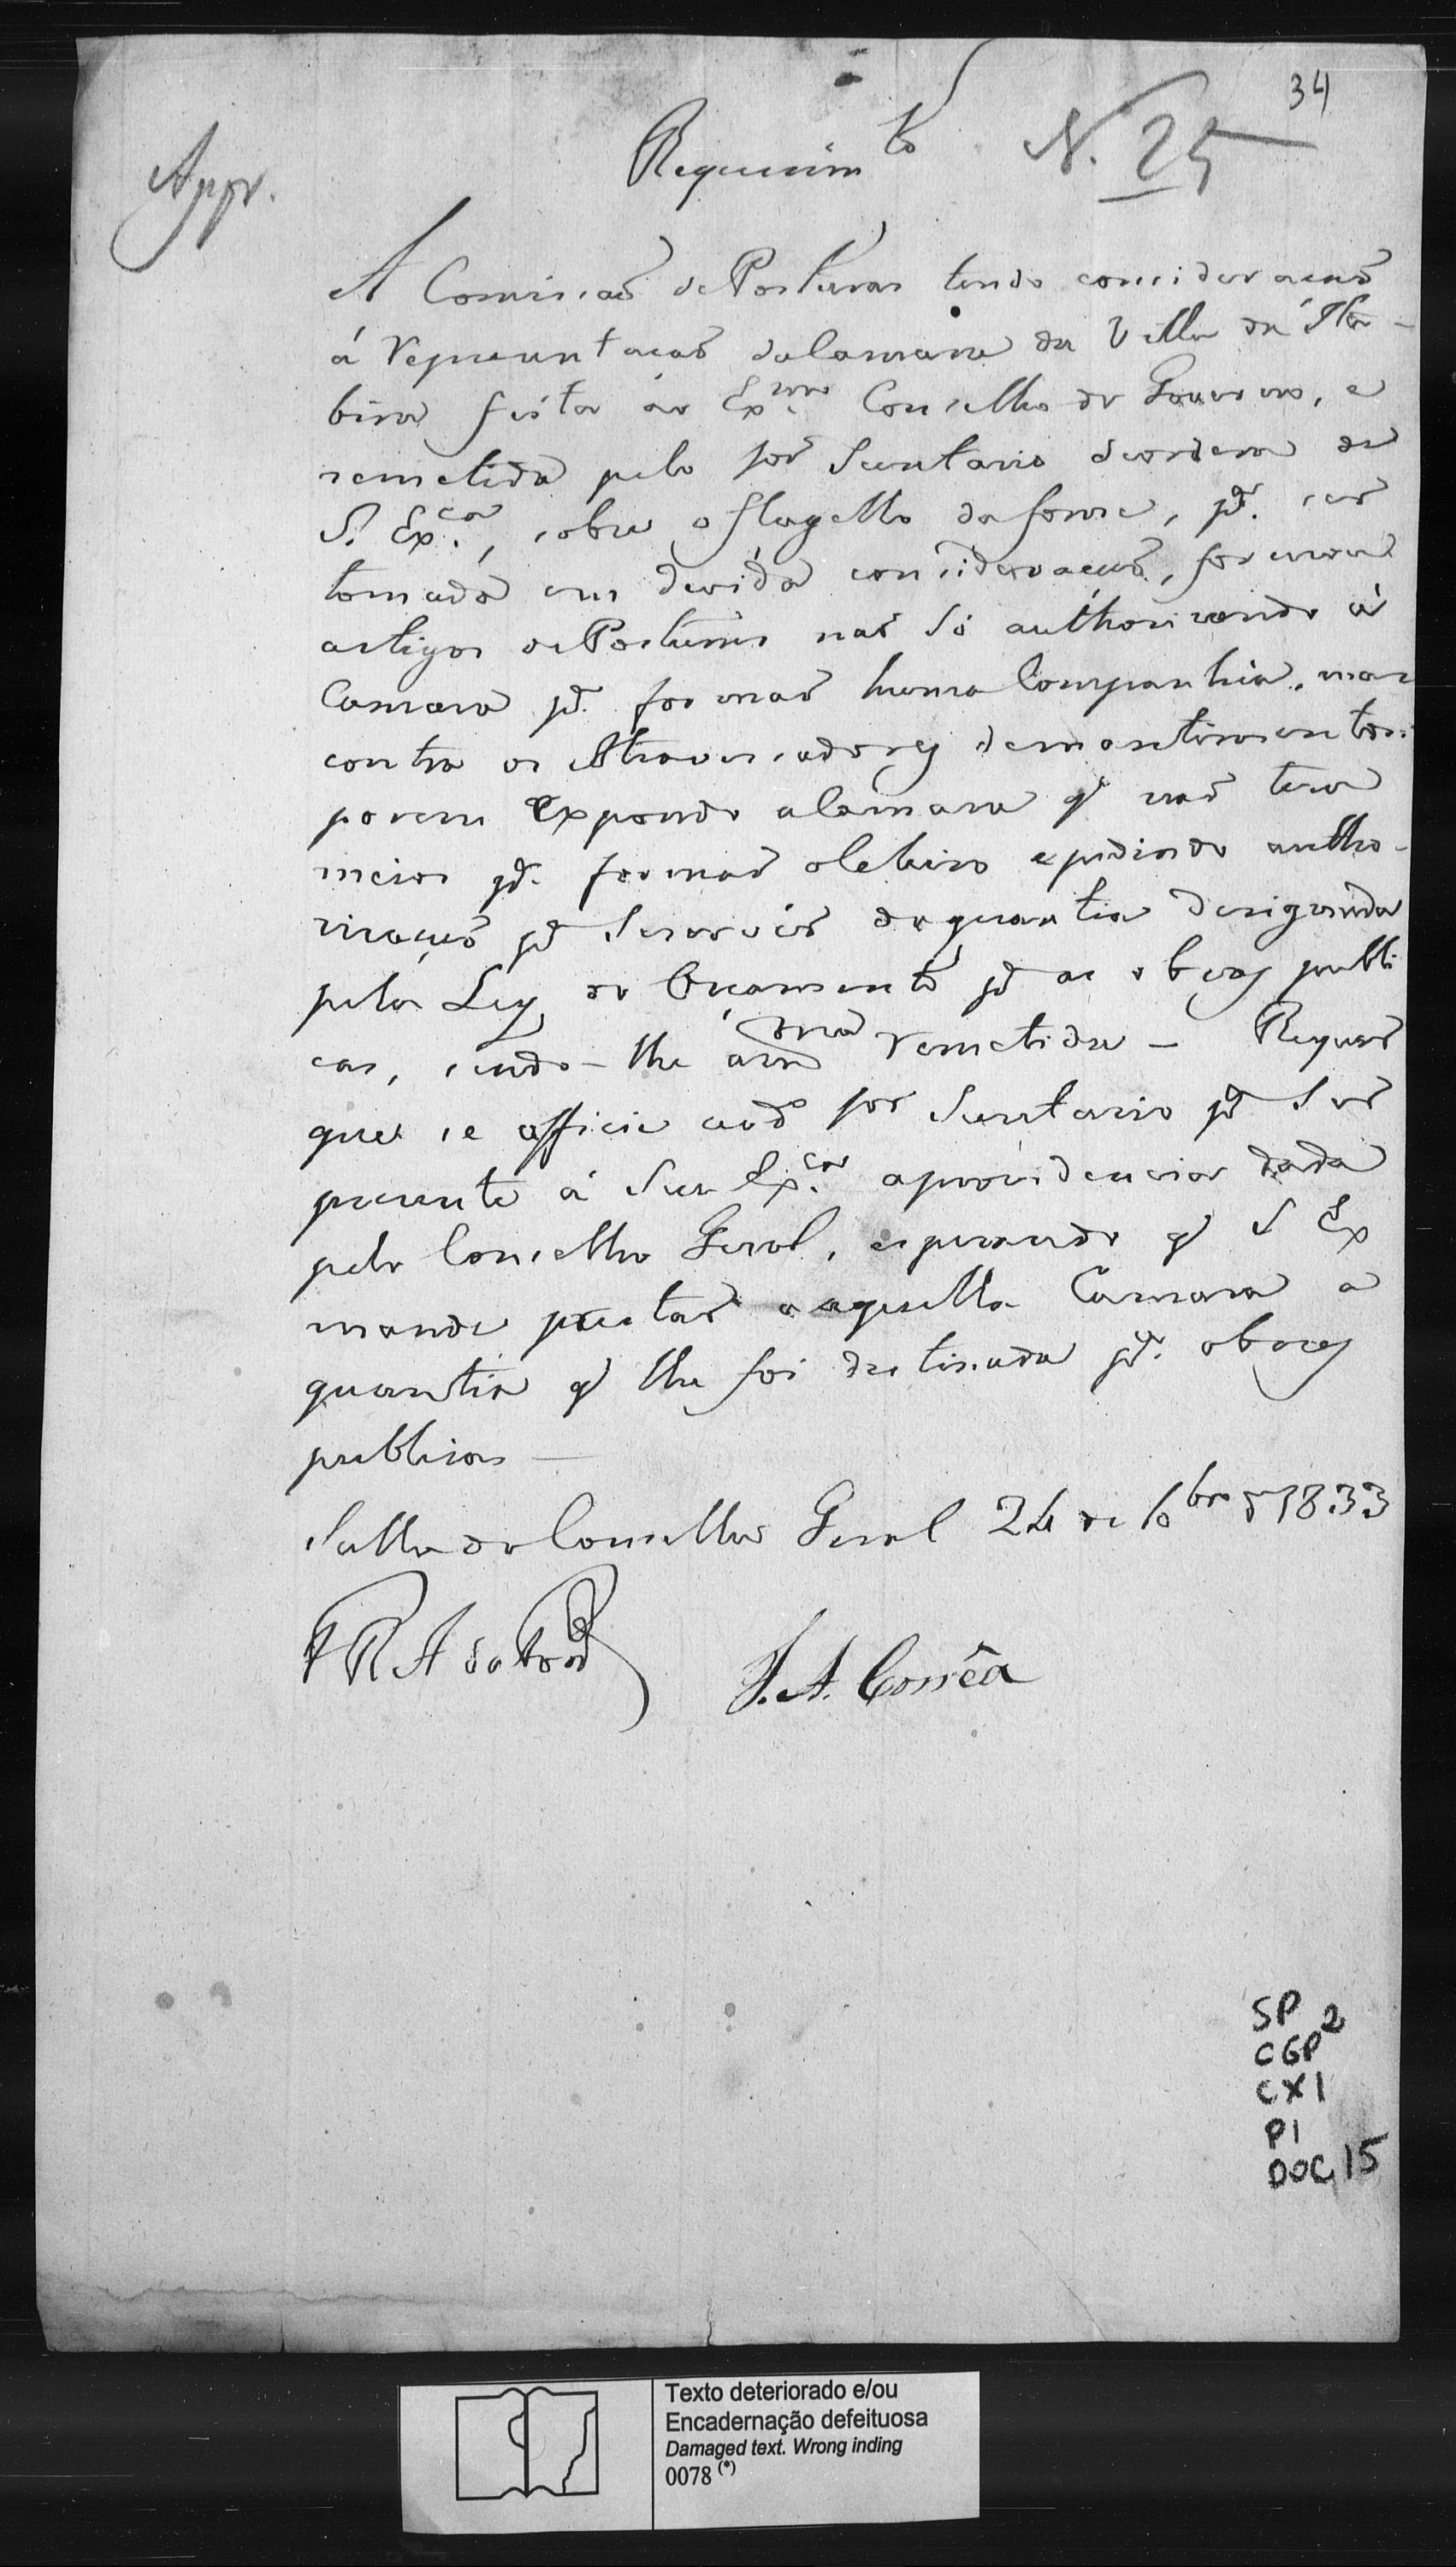 34
Requerim.to N. 25
Appr.
A Comissaõ de Posturas tendo consideraçaõ
á representaçaõ da Camara da Villa da Ita-
bira feita ao Ex.mo Conselho do Governo, e
remetida pelo Snr Secretario de ordem de
S. Ex.cia, sobre o flagello da fome, p.a ser
tomada em devida consideraçaõ, formou
artigos de Posturas naõ só authorisando á
Camara p.a formar huma Companhia, mas
contra os Atravessadores de mantimentos:
porem expondo a Camara q' naõ tem
meios p.a formar o Celeiro e pedindo autho-
risaçaõ p.a servir-se da quantia designada
pela Ley do Orçamento p.a as obras publi
cas, sendo-lhe remetida - Requer
que se officie ao d.o Snr Secretario p.a ser
presente á Sua Ex.cia a providencia dada
pelo Conselho Geral, esperando q' S Ex
mande prestar a aquella Camara a
quantia q' lhe foi destinada p.a obras
publicas —
Salla do Conselho Geral 24 de 10br.o d 1833
J. A. Corrêa
SP 2
CGP
CX1
P1
DOC 15
Texto deteriorado e/ou
Encadernação defeituosa
Damaged text. Wrong inding
0078 (*)